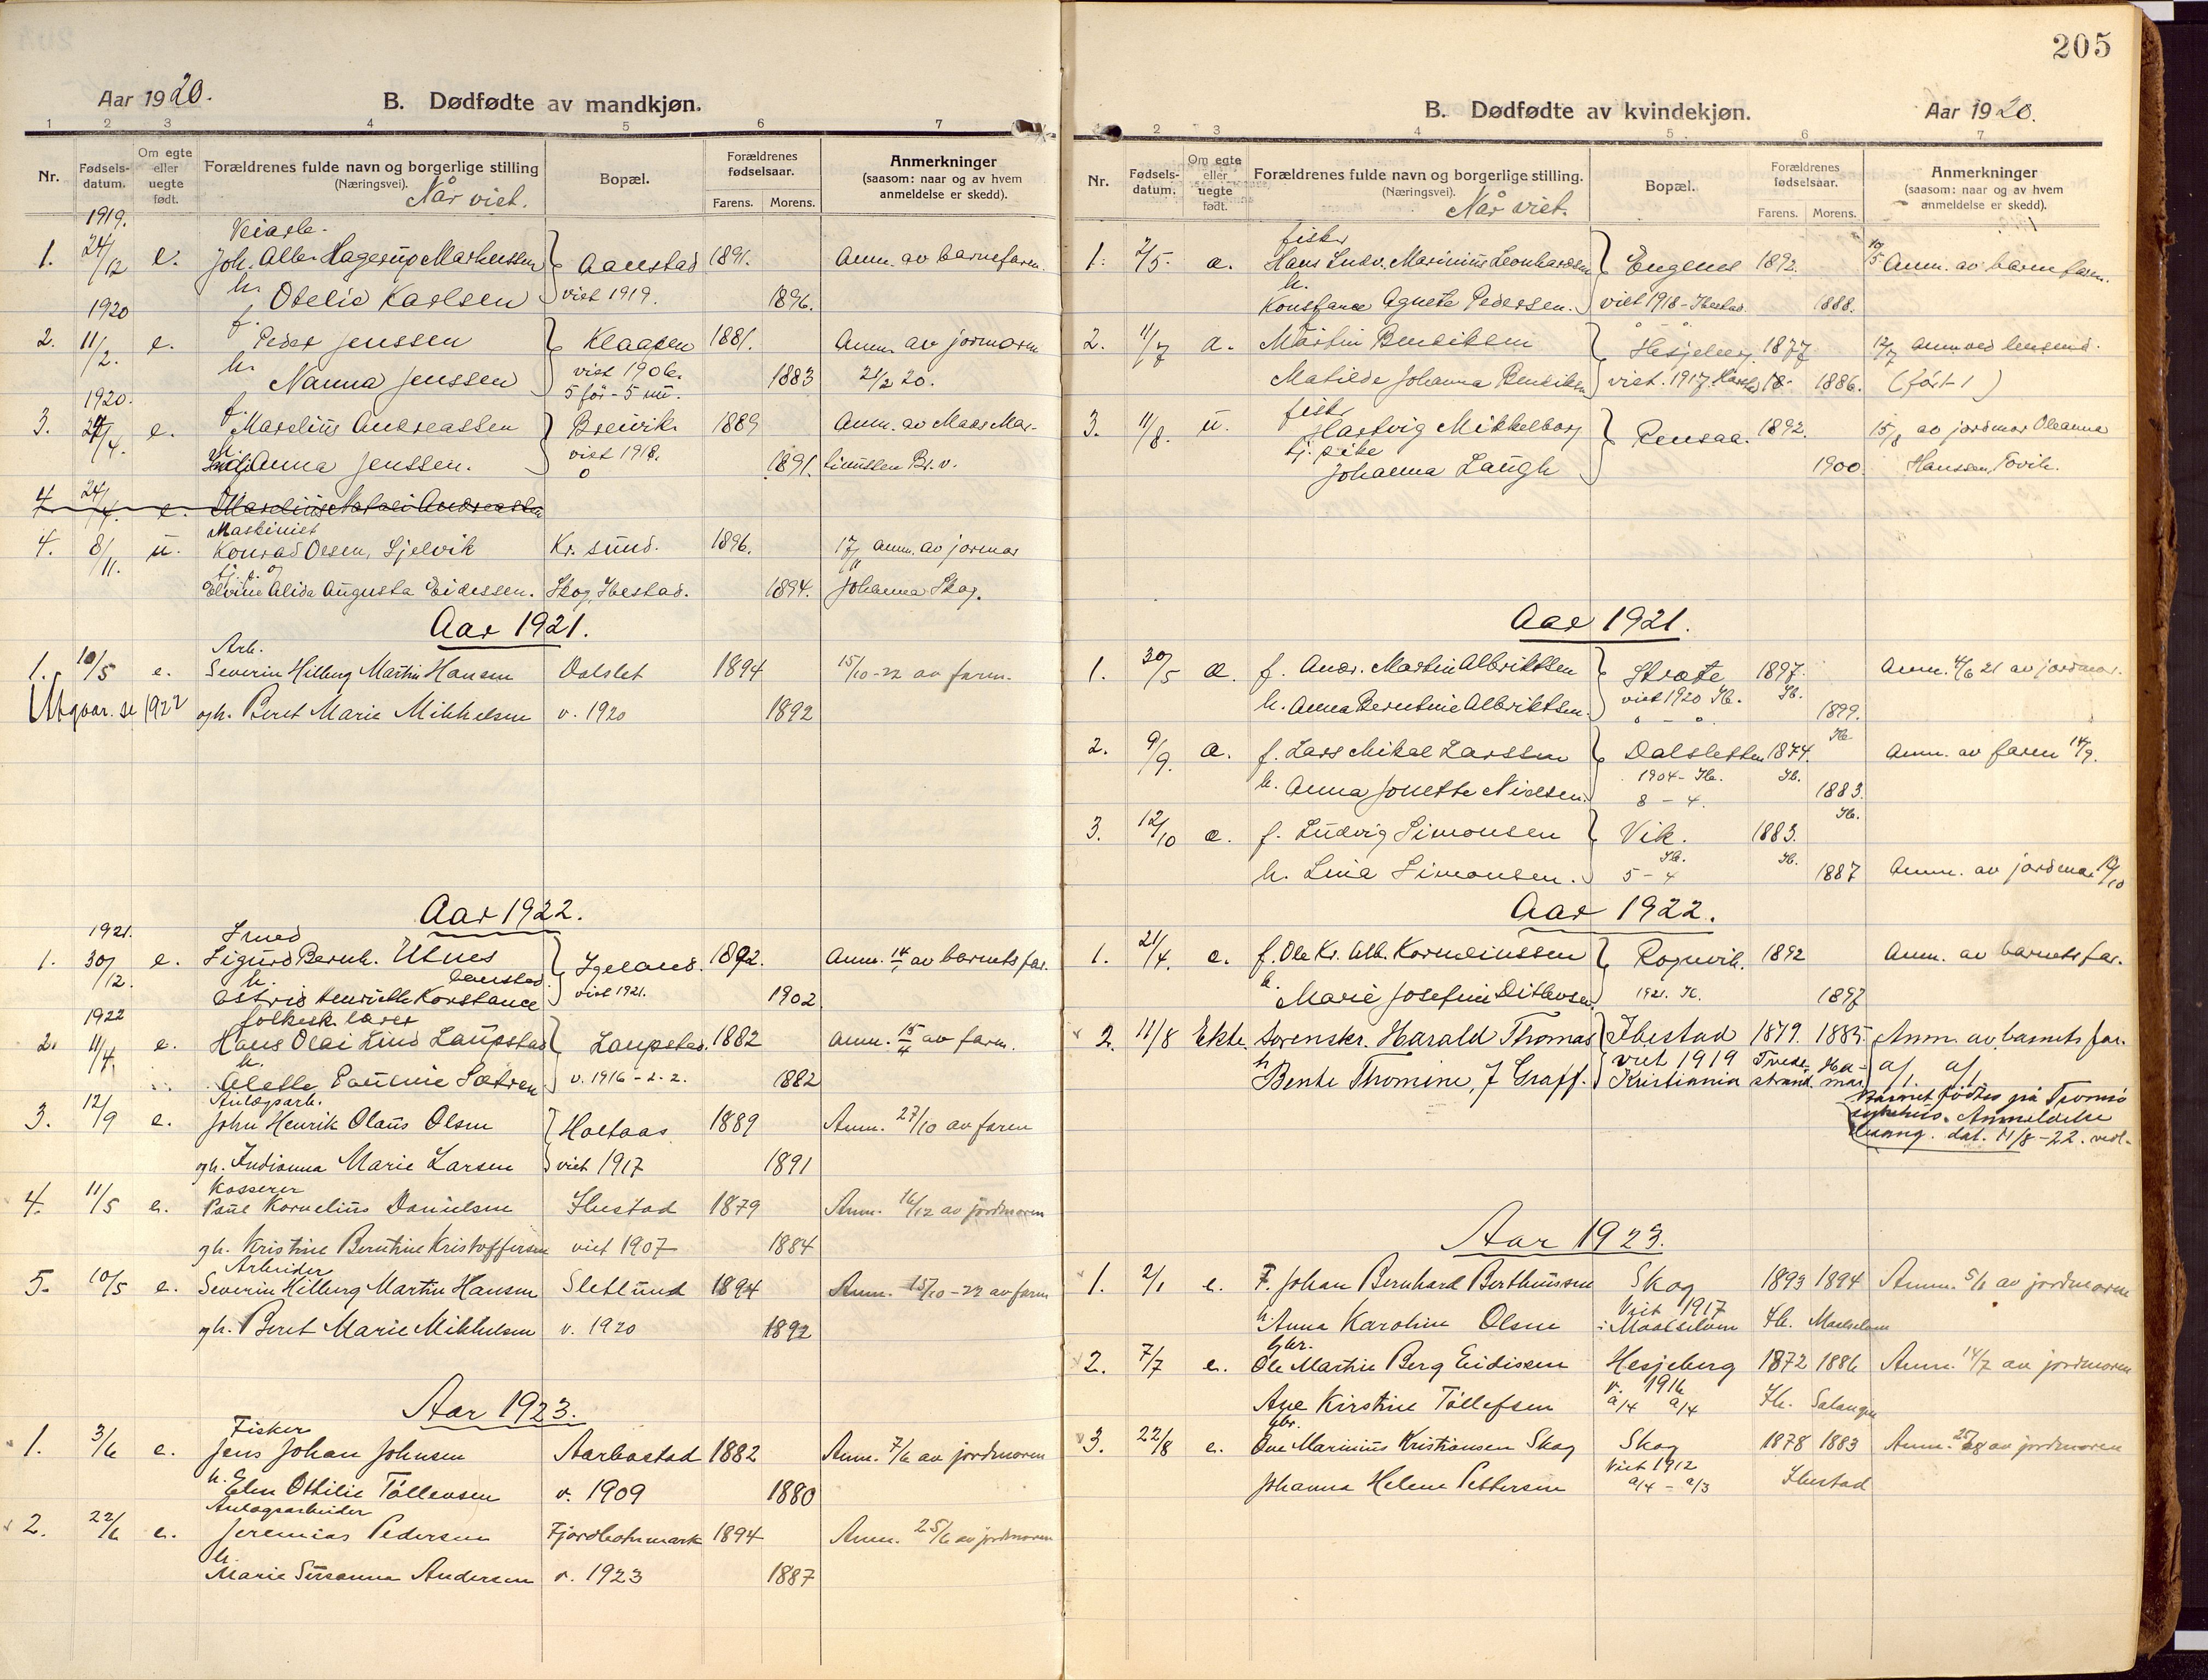 Aar 1920.
B. Dødfødte av mandkjøn.
1 2 3 4 5 6 7
Nr.
Fødsels-datum.
Om egte eller uegte født.
Forældrenes fulde navn og borgerlige stilling
(Næringsvei).
Når viet.
Bopæl.
Forældrenes fødselsaar.
Farens. Morens.
Anmerkninger
(saasom: naar og av hvem anmeldelse er skedd).
1919.
1. 24/12 e. Joh. Alb. Hagerup Markussen Aanstad 1891. Anm. av barnefaren.
1920
h. Otelie Karlsen viet 1919. 1896.
2. 11/2. e. f. Peder Jenssen Klaaden 1881. Anm. av jormoren
h. Nanna Jenssen viet 1906. 1883 21/2 20.
1920. 5 før - 5 nu.
3. 24/4. e. f. Marelius Andreassen Breivik 1889 Anm. av
Anna Jenssen. viet 1918. 1891.
4. 24/4. e. Marelius Andreassen
Maskinist
4. 8/11. u. Konrad Olsen, Sjelvik Kr. sund. 1896. 17/11 anm. av jormor
Elvine Alida Augusta Eidissen. Skog, Ibestad. 1894. Johanna Skog.
Aar 1921.
Arb.
1. 10/5 e. Severin Hilberg Martin Hansen Dalslet 1894 15/10-22 av faren.
Utgaar. se 1922 og h. Beret Marie Mikkelsen v. 1920 1892
Aar 1922.
1921. Smed
1. 30/12. e. Sigurd Bernh. Utnes Igeland. 1892. Anm. 14/1 av barnets far.
h. Aanstad
Astrid Henriette Konstance viet 1921. 1902
1922 folkesk. lærer
2. 11/4. e. Hans Olai Lind Laupstad Laupstad. 1882 Anm. 15/4 av faren.
h. Alette Pauline Sætren v. 1916 - 2. 2. 1882
Anlægsarb.
3. 12/9 e. John Henrik Olaus Olsen Holtaas 1889 Anm. 27/10 av faren
og h. Indianna Marie Larsen viet 1917 1891
Kasserer
4. 11/5 e. Paul Kornelius Danielsen Ibestad 1879 Anm. 16/12 av jordmoren
og h. Kristine Berntine Kristoffersen viet 1907 1884
Arbeider
5. 10/5 e. Severin Hilberg Martin Hansen Sletlund 1894 Anm. 15/10-22 av faren
og h. Beret Marie Mikkelsen v. 1920 1892
Aar 1923.
Fisker
1. 3/6 e. Jens Johan Johnsen Aarbostad 1882 Anm. 7/6 av jordmoren
h. Elen Othilie Tollevsen v. 1909 1880
Anlægsarbeider
2. 22/6 e. Jeremias Pedersen Fjordbotnmark 1894 Anm. 25/6 av jordmoren
h. Marie Susanna Andersen v. 1923 1887
205
B. Dødfødte av kvindekjøn.
Aar 1920.
2 3 4 5 6 7
Nr.
Fødsels-datum.
Om egte eller uegte født.
Forældrenes fulde navn og borgerlige stilling.
(Næringsvei).
Når viet.
Bopæl.
Forældrenes fødselsaar.
Farens. Morens.
Anmerkninger
(saasom: naar og av hvem anmeldelse er skedd).
fisker
1. 7/5. æ. Hans Ludv. Marinius Leonhardsen Engenes 1892. 10/5 Anm. av barnefaren.
h. Konstance Agnete Pedersen. viet 1918 - Ibestad. 1888.
2. 11/7 æ. Martin Bendiksen Hesjeberg 1877 12/7 anm. ved lensmd.
Matilde Johanna Bendiksen viet. 1917. 1886. (før - 1)
fisker
3. 11/8. u. Hartvig Mikkelborg Rensaa. 1892. 15/8 av jordmor Oleanna
tj. pike
Johanna Laugh 1900 Hanssen, Fovik.
Aar 1921.
1. 30/5 æ. f. Andr. Martin Albriktsen Straate 1897. Anm. 4/6 21 av jordmor.
h. Anna Berntine Albriktsen. viet 1920 Ib. Ib. 1899.
2. 9/9. æ. f. Lars Mikal Larssen Dalsletten 1874. Ib. Anm. av faren 14/9.
h. Anna Jonette Nielsen. 1904 - Ib. Ib. 1883.
8 - 4.
3. 12/10 æ. f. Ludvig Simonsen Vik. 1883. Ib.
h. Lina Simonsen. Ib. 5 - 4 Ib. 1887 Anm. av jordmor 19/10
Aar 1922.
1. 21/4. e. f. Ole Kr. Alb. Korneliussen Rognvik. 1892 Anm. av barnets far.
h. Marie Josefine Ditlevsen 1921. Ib. 1897
2. 11/8 Ekte sorenskr. Harald Thomas Ibestad 1879. 1885. Anm. av barnets far.
h Bente Thomine, f Graff. viet 1919 Kristiania Tvedestrand. Hamar a/1. a/1
Barnet fødtes på Tromsø
sykehus. Anmeldelse
dat. 11/8-22. vedl.
Aar 1923.
1. 2/1 e. F. Johan Bernhard Berthiussen Skog 1893 1894 Anm. 5/1 av jordmoren
h Anna Karoline Olsen Viet 1917 i Maalselven Ib. Maalselven
Gbr.
2. 7/7 e. Ole Martin Berg Eidissen Hesjeberg 1872 1886 Anm. 14/7 av jordmoren
Ane Kirstine Tollefsen v. 1916 a/4 a/4 Ib. Salangen
Gbr.
3. 22/8 e. Ove Marinius Kristiansen Skog Skog 1878 1883 Anm. 25/8 av jordmoren
Johanna Helene Pettersen Viet 1912 a/4 - a/3 Ibestad